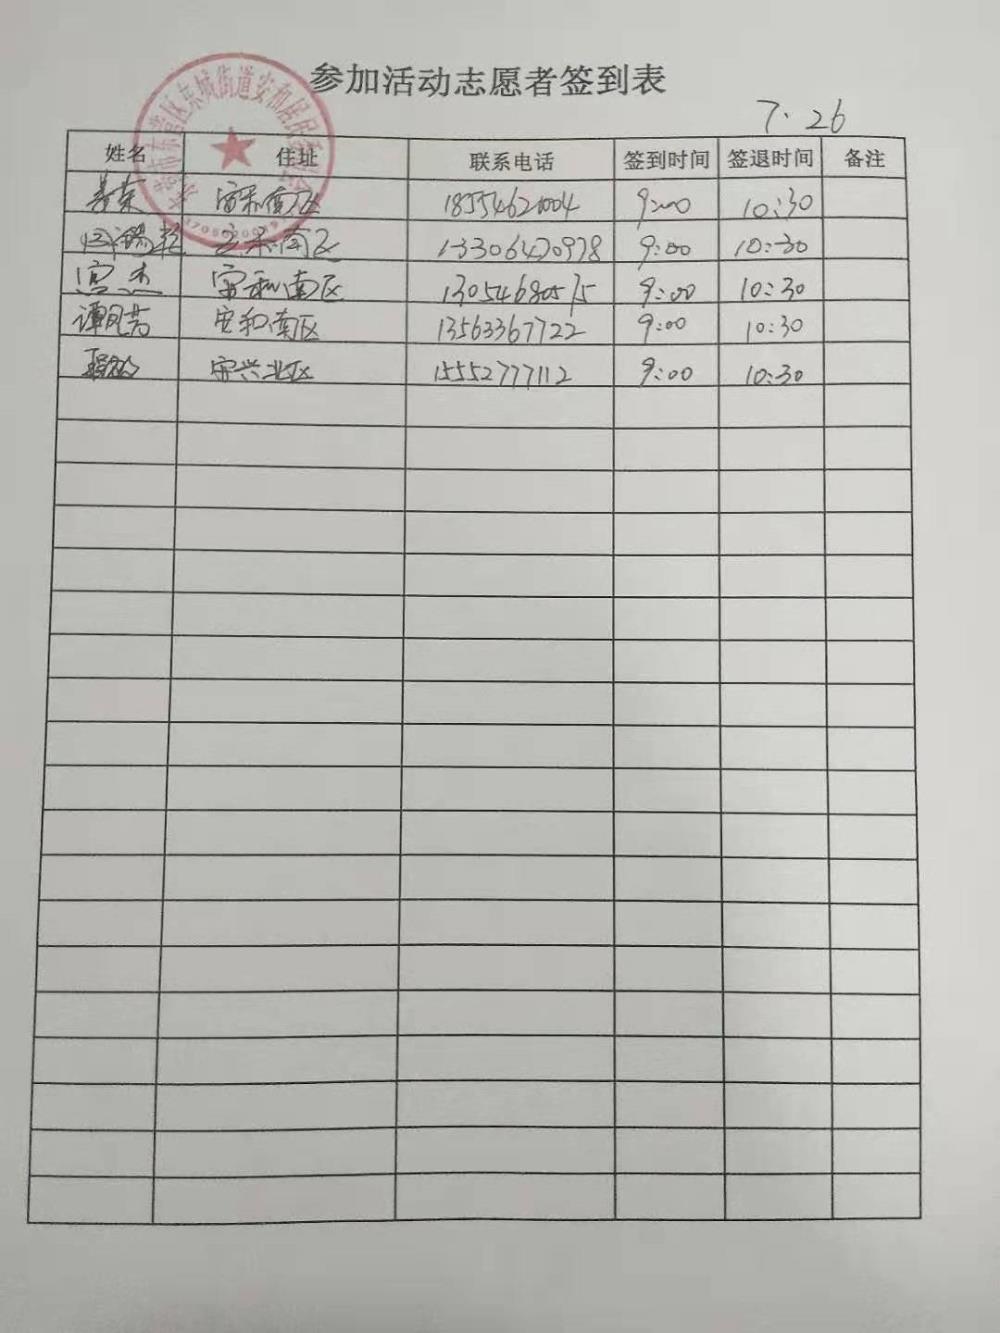 参加活动志愿者签到表
7.26
姓名 住址 联系电话 签到时间 签退时间 备注
安和南区 18554621004 9:00 10:30
安和南区 13306470978 9:00 10:30
宫杰 安和南区 13054680515 9:00 10:30
谭凤芳 安和南区 13563367722 9:00 10:30
安兴北区 15552777112 9:00 10:30